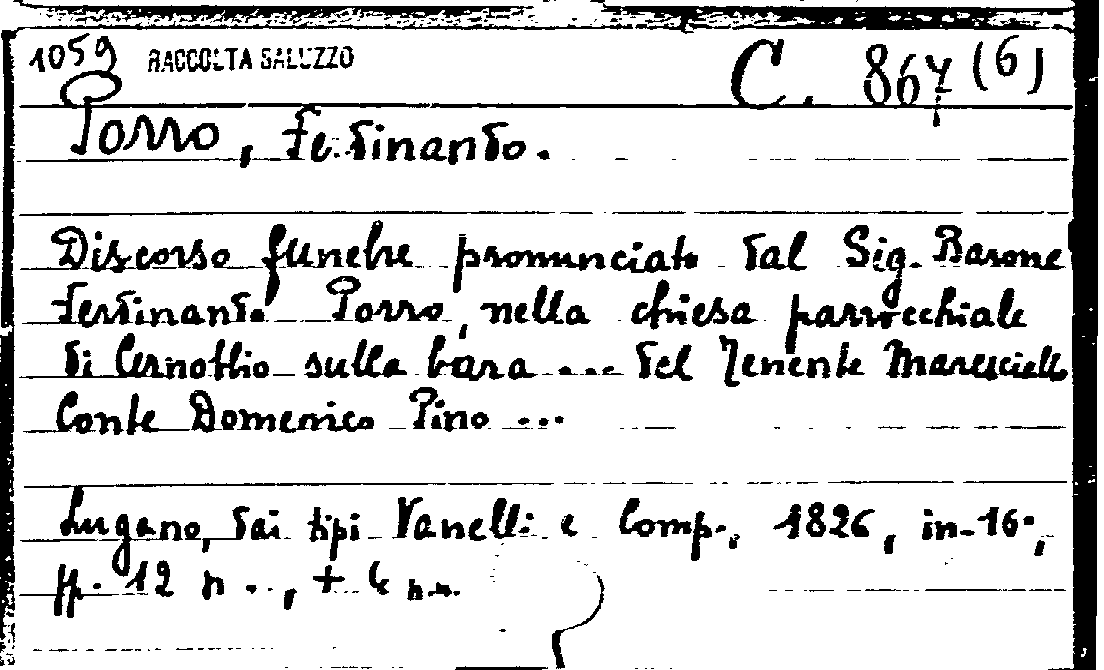 1059 RACCOLTA SALUZZO C. 867 (6)
Porro, Ferdinando.
Discorso funebre pronunciato dal Sig. Barone
Ferdinando Porro, nella chiesa parrocchiale
di Cernobbio sulla bara ... del Tenente Maresciallo
Conte Domenico Pino ...
Lugano, dai tipi Vanelli e Comp., 1826, in-16°,
pp. 12 n .., + 4 n.n.